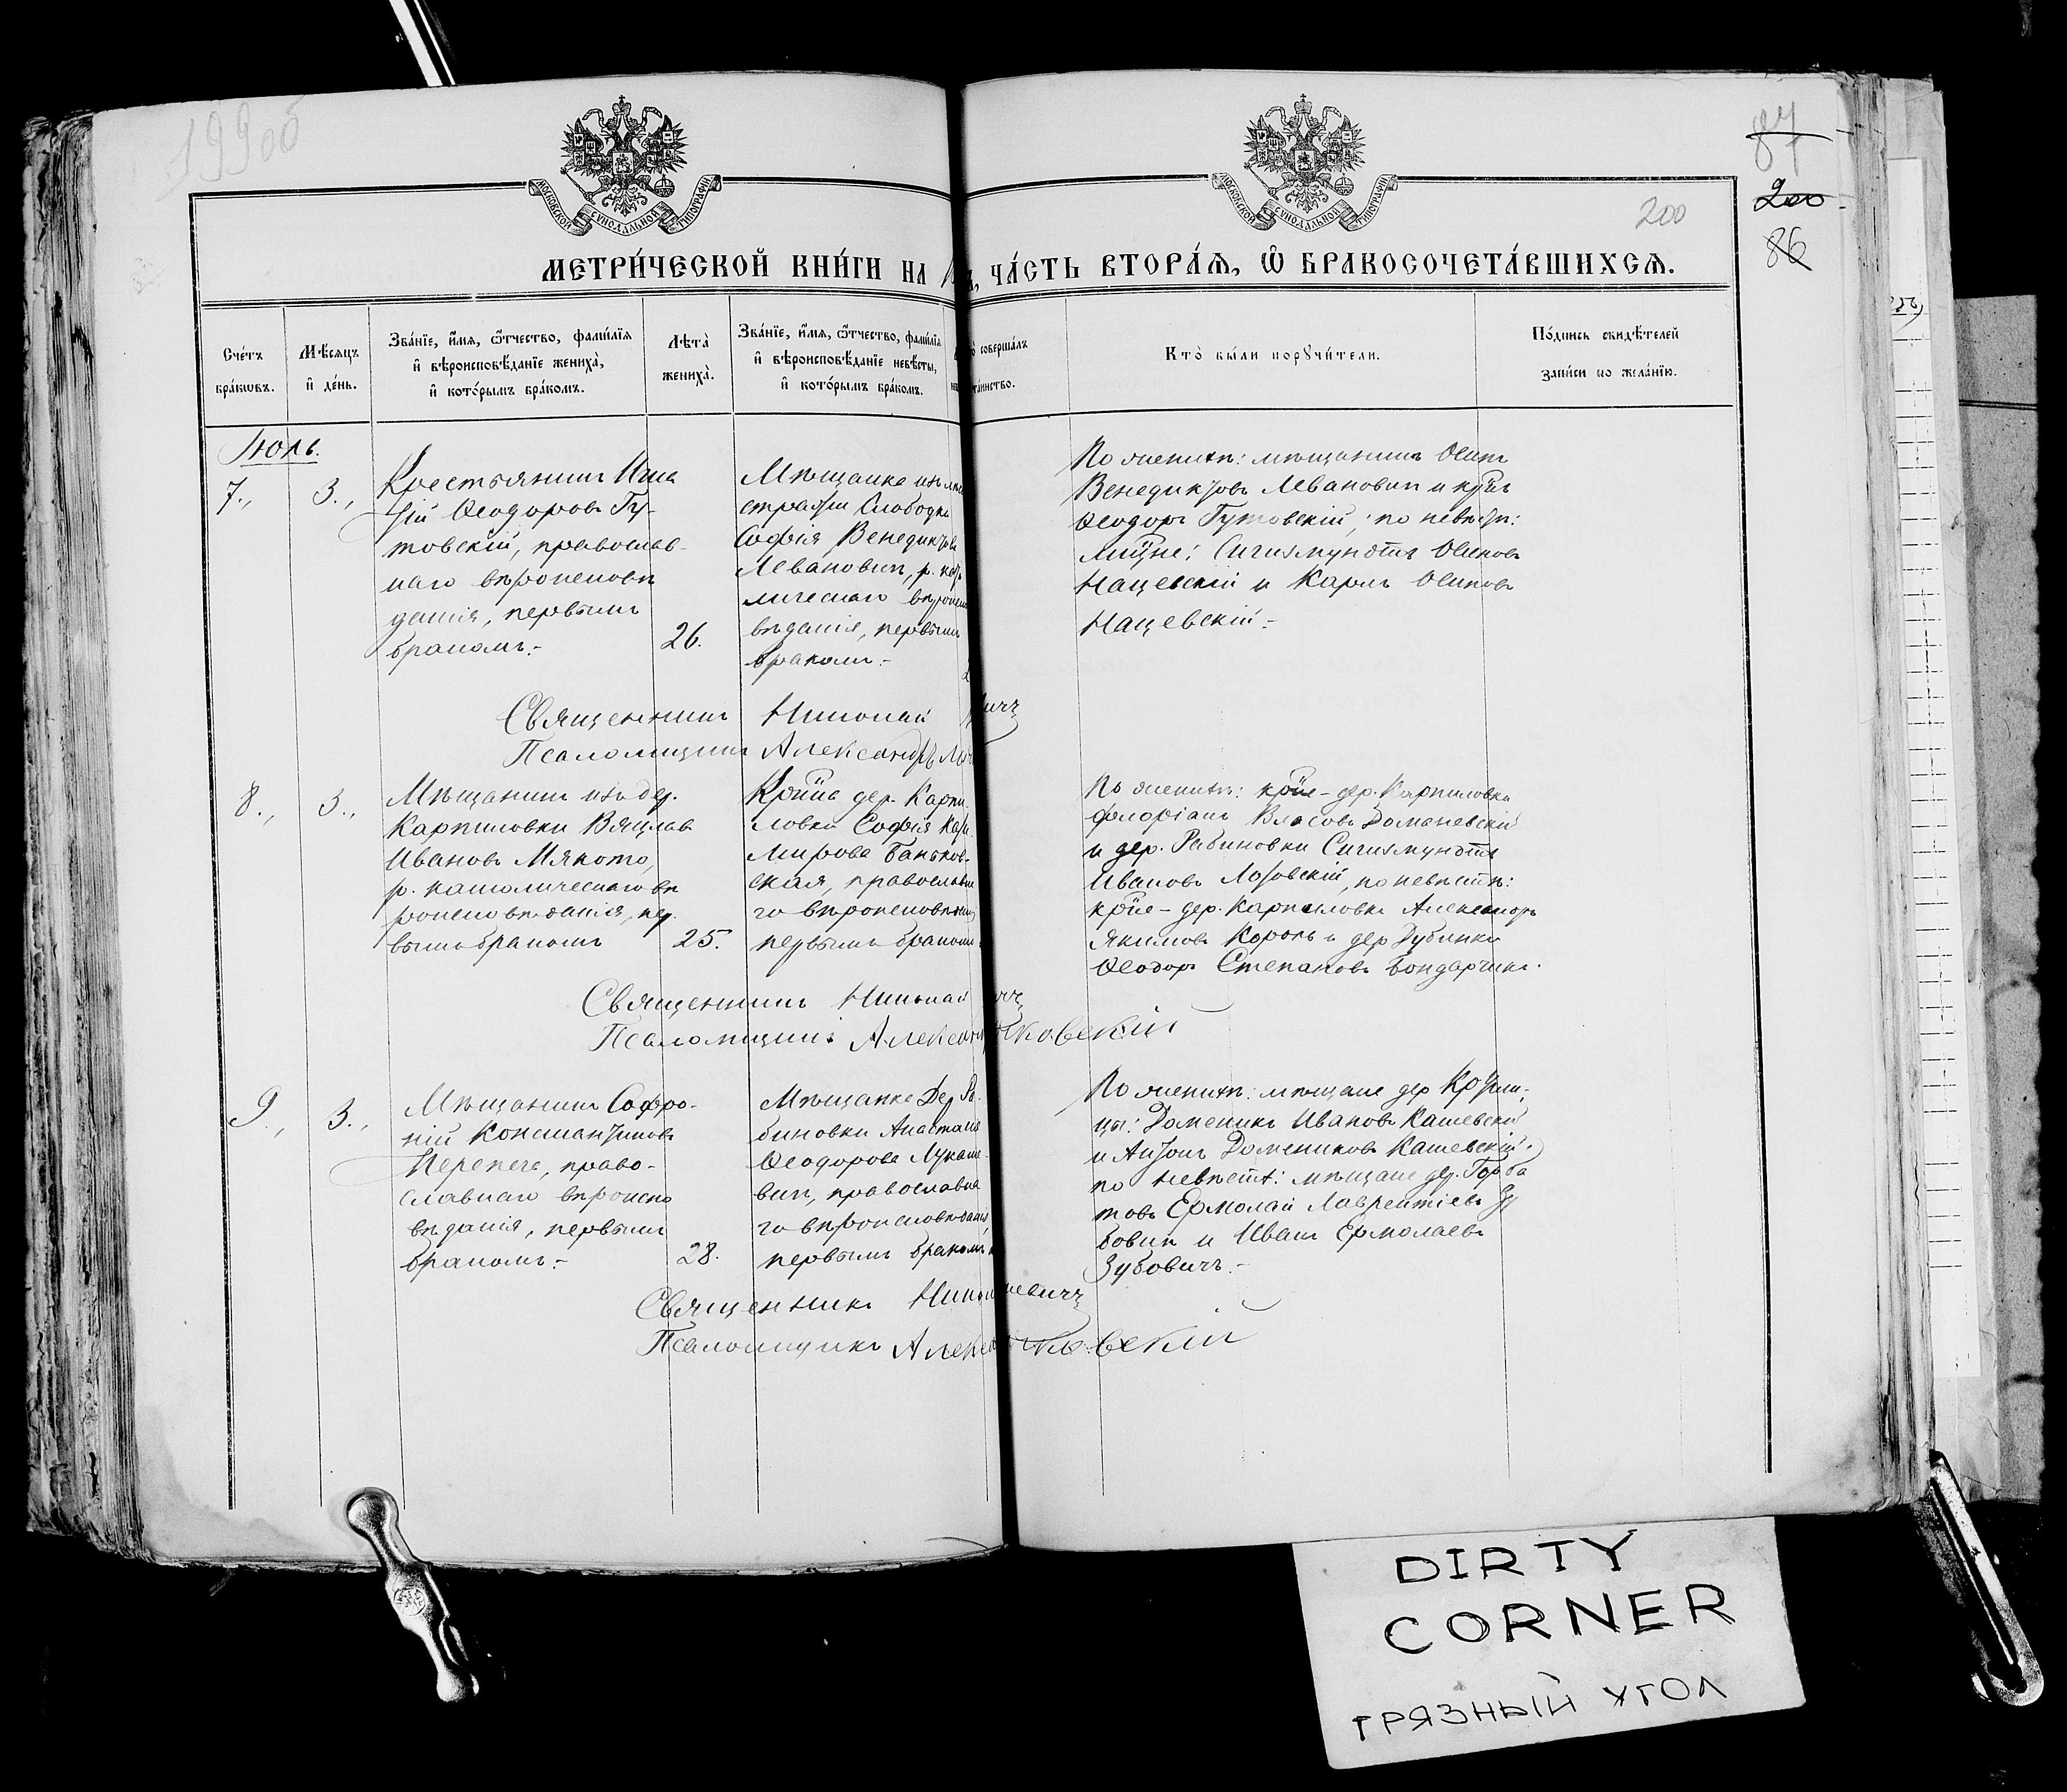 199об
87
200
200
86
МОСКОВСКОЙ СѴНОДАЛЬНОЙ ТИПОГРАФІИ
МОСКОВСКОЙ СѴНОДАЛЬНОЙ ТИПОГРАФІИ
МЕТРИ́ЧЕСКОЙ КНИ́ГИ НА
ЧА́СТЬ ВТОРА́Ѧ, Ѡ БРАКОСОЧЕТА́ВШИХСѦ.
Сче́тъ
бра́кѡвъ.
Мѣ́сѧцъ
и҆ де́нь.
Зва́нїе, и҆́мѧ, ѻ҆́тчество, фами́лїѧ
и҆ вѣроисповѣ́данїе жениха̀,
и҆ кото́рымъ бра́комъ.
Лѣ́та
жениха̀.
Зва́нїе, и҆́мѧ, ѻ҆́тчество, фами́лїѧ
и҆ вѣроисповѣ́данїе невѣ́сты,
и҆ кото́рымъ бра́комъ.
соверша́лъ
та́инство.
Кто̀ бы́ли порꙋчи́тели.
По́дпись свидѣ́телей
за́писи по жела́нїю.
Іюль.
7.,
3.,
Крестьянинъ Игна
тій Ѳеодоровъ Гу-
товскій, православ-
наго вѣроисповѣ
данія, первымъ
бракомъ.-
26.
Мѣщанка изъ
Слободки
Софія Венедиктова
Левановичъ, р. като
лическаго вѣроиспо
вѣданія, первымъ
бракомъ.-
По женихѣ: мѣщанинъ Осипъ
Венедиктовъ Левановичъ и кр̃нъ
Ѳеодоръ Гутовскій; по невѣстѣ:
Сигизмундъ Осиповъ
Нацевскій и Карлъ Осиповъ
Нацевскій.-
Священникъ Николай вичъ
Псаломщикъ Александръ
8.,
3.,
Мѣщанинъ изъ дер.
Карпиловки Вяцлавъ
Ивановъ Мякото,
р. католическаго вѣ
роисповѣданія, пер.
вымъ бракомъ
25.
Кр̃нка дер. Карпи-
ловки Софія Кази-
мирова Баньков-
ская, православна
го вѣроисповѣданія
первымъ бракомъ
По женихѣ: кр̃не - дер. Карпиловки
Флоріанъ Власовъ Доманевскій
и дер. Рабиновки Сигизмундъ
Ивановъ Лозовскій, по невѣстѣ:
кр̃не - дер. Карпиловки Александръ
Якимовъ Король и дер Дубинки
Ѳеодоръ Степановъ Бондарчикъ.
Священникъ Николай ичъ
Псаломщикъ Александ ковскій
9.,
3.,
Мѣщанинъ Софро-
ній Константиновъ
Перепеча, право-
славнаго вѣроиспо
вѣданія, первымъ
бракомъ.-
28.
Мѣщанка дер Ра-
биновки Анастасія
Ѳеодорова Лукаше-
вичъ, православна
го вѣроисповѣданія,
первымъ бракомъ
По женихѣ: мѣщане дер
цы: Доменикъ Ивановъ Кашевскій
и Антонъ Домениковъ Кашевскій;
по невѣстѣ: мѣщане дер. Горба
товъ Ермолай Лаврентіевъ Зу
бовичъ и Иванъ Ермолаевъ
Зубовичъ.-
Священникъ Никол невичъ
Псаломщикъ Алекса ковскій
DIRTY
CORNER
ГРЯЗНЫЙ УГОЛ